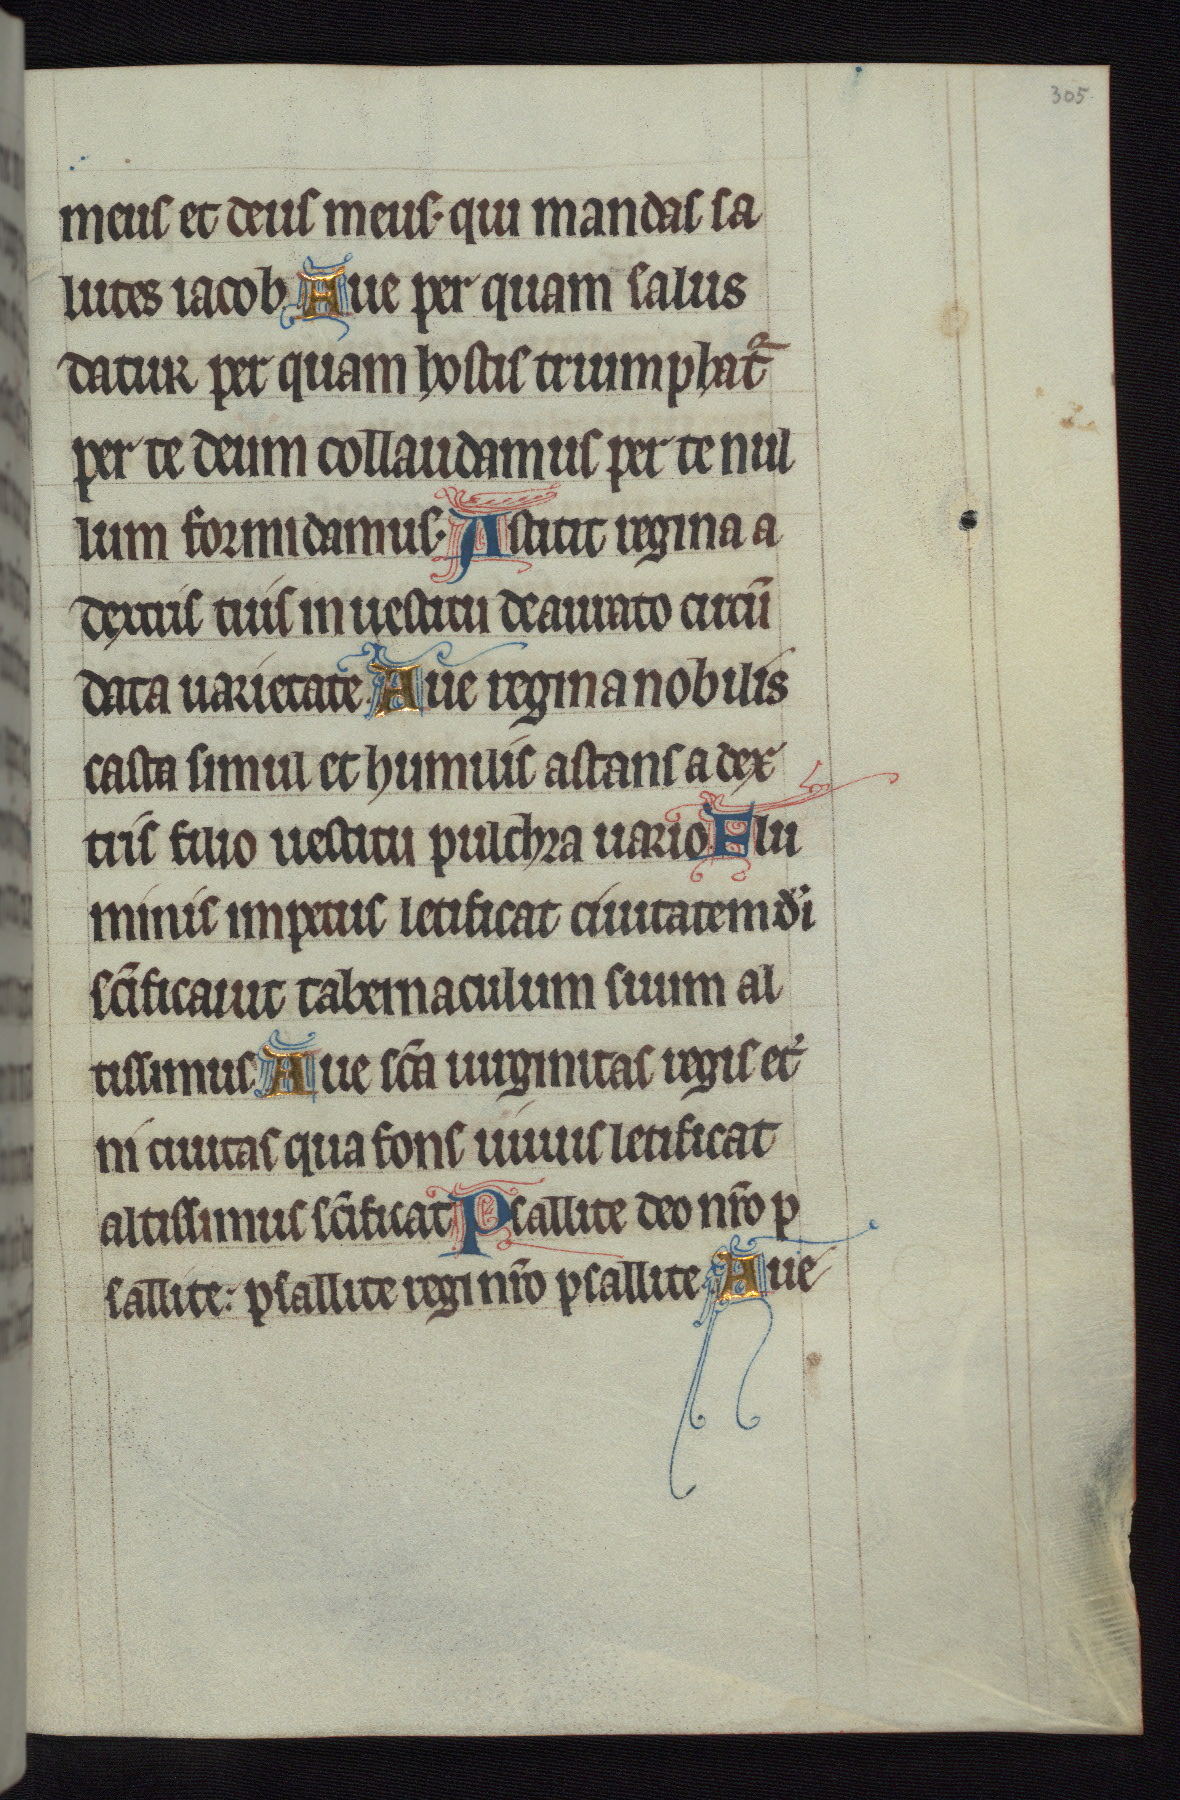 305
meus et deus meus· qui mandas sa
lutes iacob Aue per quam salus
datur per quam hostis triumphat᷑
per te deum collaudamus per te nul
lum formidamus· Astitit regina a
dextris tuis in uestitu deaurato circū
data uarietate· Aue regina nobilis
casta simul et humilis astans a dex
tris filio uestitu pulchra uario Flu
minis impetus letificat ciuitatem dī
scīficauit tabernaculum suum al
tissimus Aue scā uirginitas regis et̾
ni ciuitas qua fons uiuus letificat
altissimus scīficat Psallite deo nr̄o p
sallite: psallite regi nr̄o psallite Aue